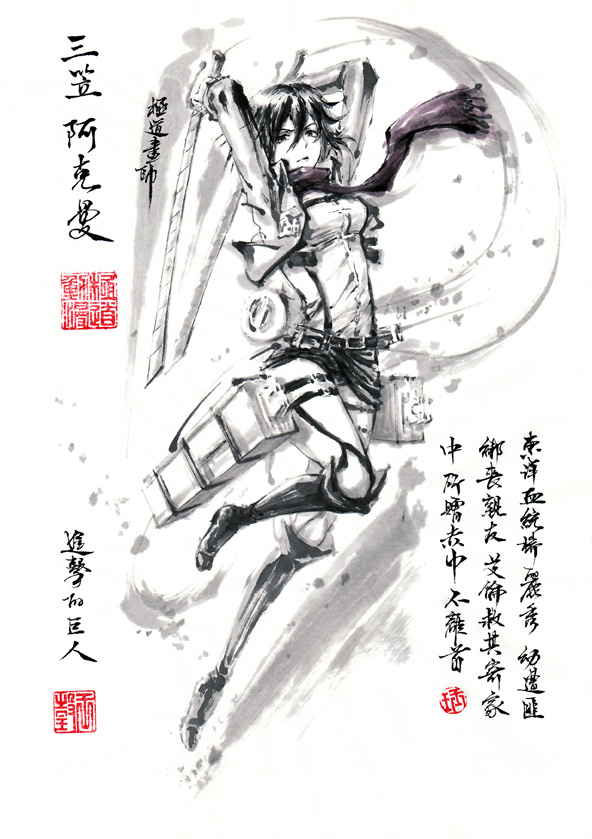 三笠 阿克曼
極道畫師
進擊的巨人
東洋血統綺麗秀 幼遭匪
綁喪親友 艾倫救其寄家
中 所贈赤巾 不離首